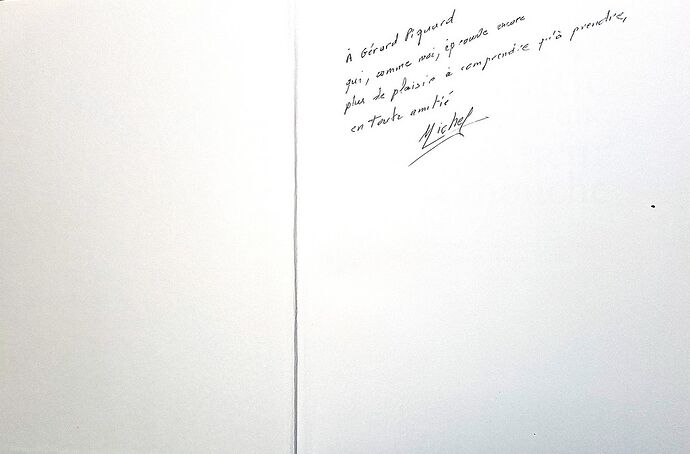 À Gérard Piquard
qui, comme moi, éprouve encore
plus de plaisir à comprendre qu'à prendre,
en toute amitié
Michel